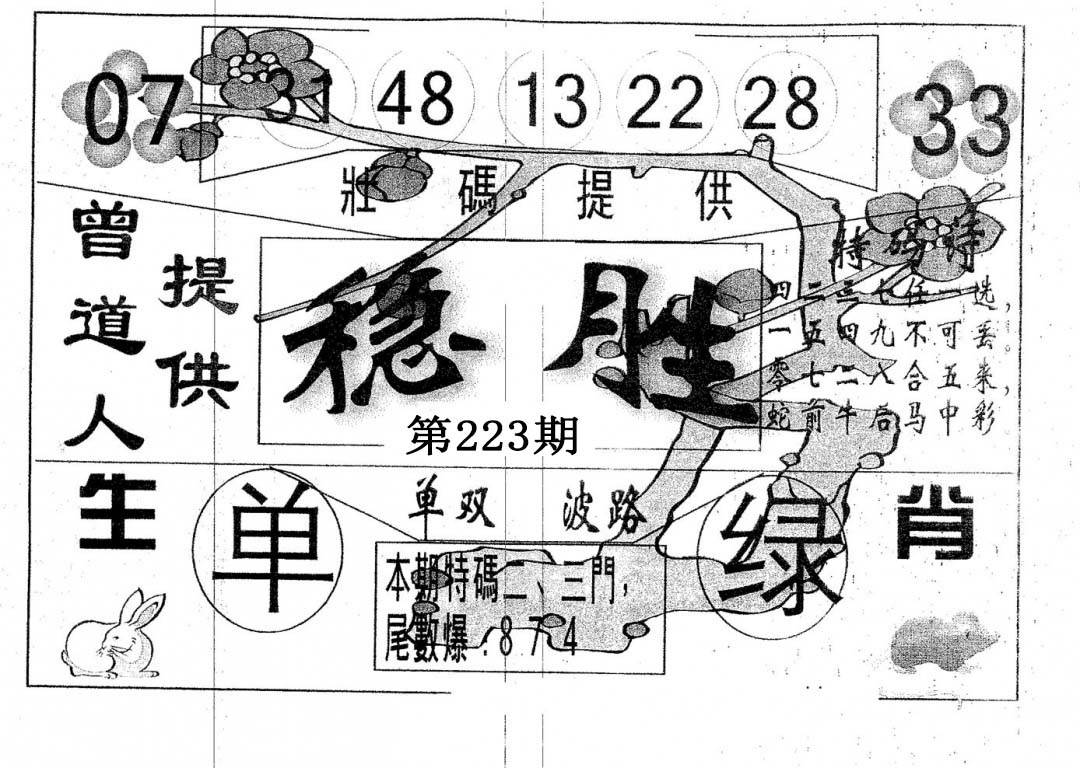 07 31 48 13 22 28 33
壯碼提供
曾道人
提供
稳胜
第223期
特码诗
四二三七任一选，
一五四九不可丢。
零七二八合五来，
蛇前牛后马中彩
生肖
单双 波路
单 绿
本期特碼二、三門，
尾數爆：874